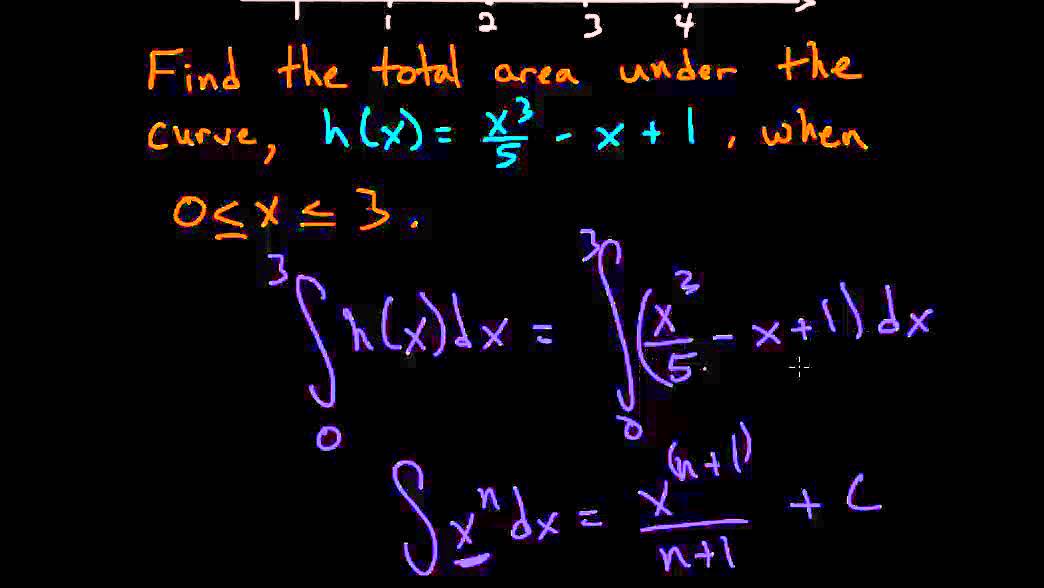 1 2 3 4
Find the total area under the
curve, h(x) = x³/5 - x + 1, when
0 ≤ x ≤ 3.
∫₀³ h(x)dx = ∫₀³ (x³/5 - x + 1) dx
∫ xⁿ dx = x⁽ⁿ⁺¹⁾/n+1 + C